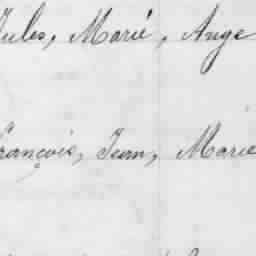 Jules, Marié, Ange
François, Jean, Marie